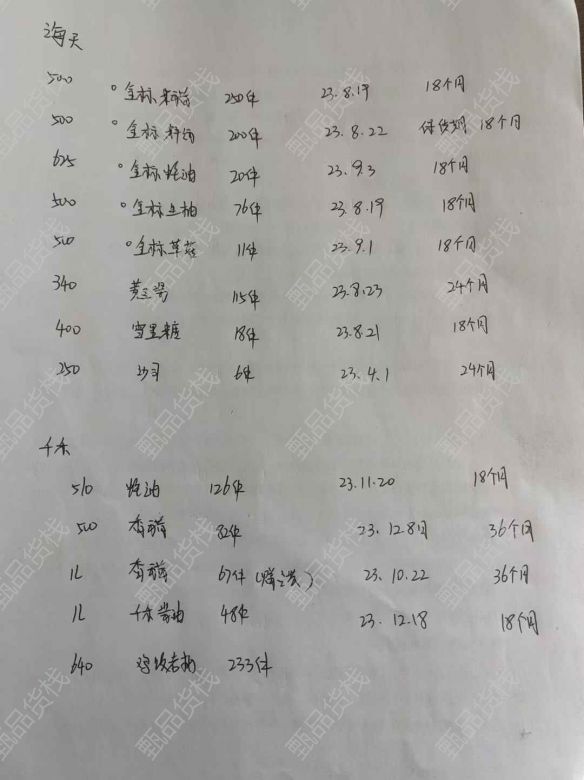 海天
500 °金标米醋 250件 23.8.19 18个月
500 °金标料酒 200件 23.8.22 保质期 18个月
625 °金标蚝油 20件 23.9.3 18个月
500 °金标生抽 76件 23.8.19 18个月
500 °金标草菇 11件 23.9.1 18个月
340 黄豆酱 115件 23.8.23 24个月
400 雪里糖 18件 23.8.21 18个月
250 沙司 6件 23.4.1 24个月
千禾
510 蚝油 126件 23.11.20 18个月
500 香醋 82件 23.12.8日 36个月
1L 香醋 67件 23.10.22 36个月
1L 千禾酱油 48件 23.12.18 18个月
640 233件
甄品货栈